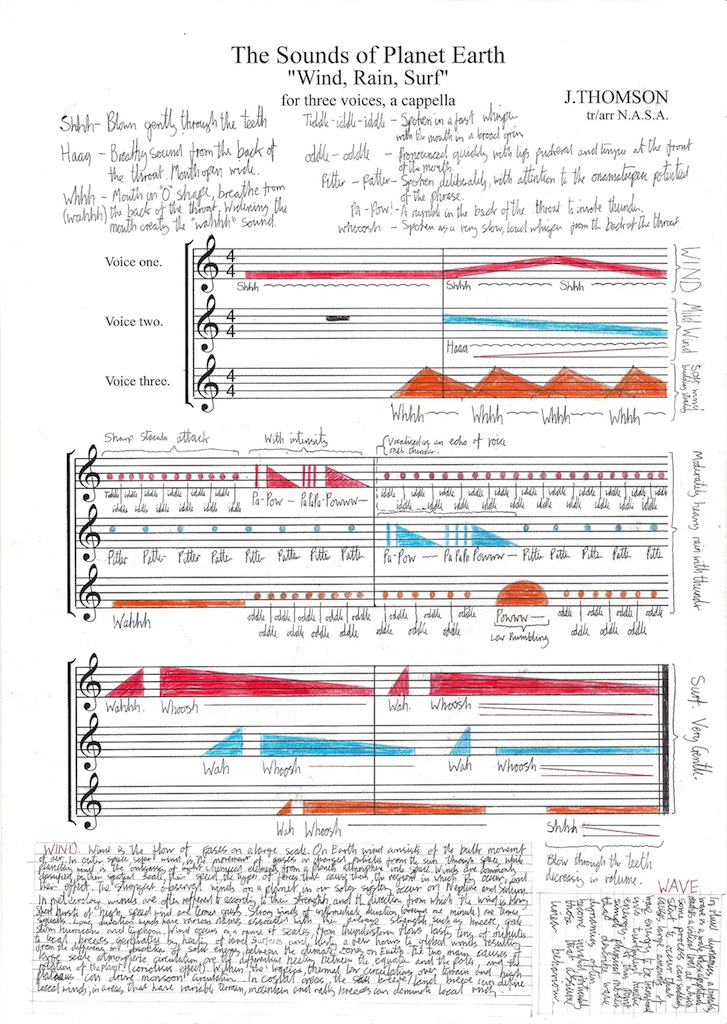 The Sounds of Planet Earth
"Wind, Rain, Surf"
for three voices, a cappella
J.THOMSON
tr/arr N.A.S.A.
Shhh - Blown gently through the teeth
Haaa - Breathy sound from the back of
the throat. Mouth open wide.
Whhh - Mouth in "O" shape, breathe from
(wahhh) the back of the throat. Widening the
mouth creates the "wahhh" sound.
Tiddle-iddle-iddle - Spoken in a fast whisper
with the mouth in a broad grin
oddle-oddle - Pronounced quickly with lips pushed and tongue at the front
of the mouth.
Pitter - patter - Spoken deliberately, with attention to the onomatopoeic potential
of the phrase.
Pa-Pow! - A rumble in the back of the throat to invoke thunder.
whooosh - Spoken as a very slow, loud whisper from the back of the throat
Voice one.
Shhh Shhh Shhh
WIND
Voice two.
Haaa
Mild Wind
Voice three.
Whhh Whhh Whhh Whhh
Soft wind
building
Sharp staccato attack
With intensity
Vocalised as an echo of voice
one's thunder.
Tiddle iddle iddle iddle iddle iddle iddle
iddle iddle iddle iddle iddle iddle
Pa-Pow - PaPaPa-Powww -
iddle iddle iddle iddle iddle iddle iddle
iddle iddle iddle iddle iddle iddle iddle
Pitter Patter Pitter Patter Pitter Patter Pitter Patter
Pa-Pow Pa PaPa Powww Pitter Patter Pitter Patter
Wahhh
oddle oddle oddle oddle
oddle oddle oddle oddle
oddle oddle oddle
oddle oddle oddle
Powww
Low Rumbling
oddle oddle oddle
oddle oddle oddle
Moderately heavy rain with thunder
Wahhh. Whoosh Wah. Whoosh
Wah Whoosh Wah Whoosh
Wah Whoosh Shhh
Surf. Very Gentle.
Blow through the teeth
decreasing in volume.
WIND. Wind is the flow of gases on a large scale. On Earth wind consists of the bulk movement
of air. In outer space, solar wind, is the movement of gases or charged particles from the sun through space, while
planetary wind is the outgassing of light chemical elements from a planet's atmosphere into space. Winds are commonly
classified by their spatial scale, their speed, the types of forces that cause them, the regions in which they occur, and
their effect. The strongest observed winds on a planet in our solar system occur on Neptune and Saturn.
In meteorology winds are often referred to according to their strength, and the direction from which the wind is blowing.
Short bursts of high speed wind are termed gusts. Strong winds of intermediate duration (around one minute) are termed
squalls. Long duration winds have various names associated with their average strength, such as breeze, gale
storm hurricane and typhoon. Wind occurs on a range of scales, from thunderstorm flows lasting tens of minutes
to local breezes generated by heating of land surfaces and lasting a few hours to global winds resulting
from the difference in absorption of solar energy between the climate zones on Earth. The two main causes of
large scale atmospheric circulation are the differential heating between the equator and the poles and the
rotation of the planet (coriolis effect). Within the tropics, thermal low circulations over terrain and high
plateaus can drive monsoon circulations. In coastal areas, the sea breeze/land breeze can define
local winds; in areas that have variable terrain, mountain and valley breezes can dominate local winds.
WAVE
In fluid dynamics, a breaking